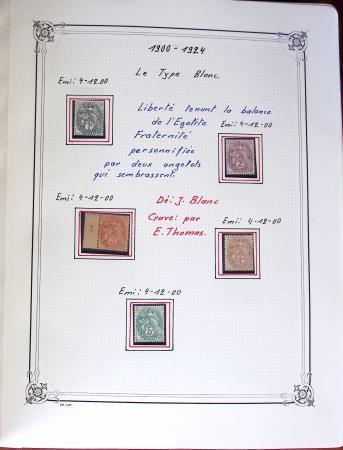 1900-1924
Le Type Blanc.
Emi: 4-12.00
Liberté tenant la balance
de l'Egalité
Emi: 4-12-00
Fraternité
personnifiée
par deux angelots
qui sembrassent.
Emi: 4-12-00
Dé: J. Blanc
Gravé: par
E. Thomas.
Emi: 4-12-00
Emi: 4-12-00